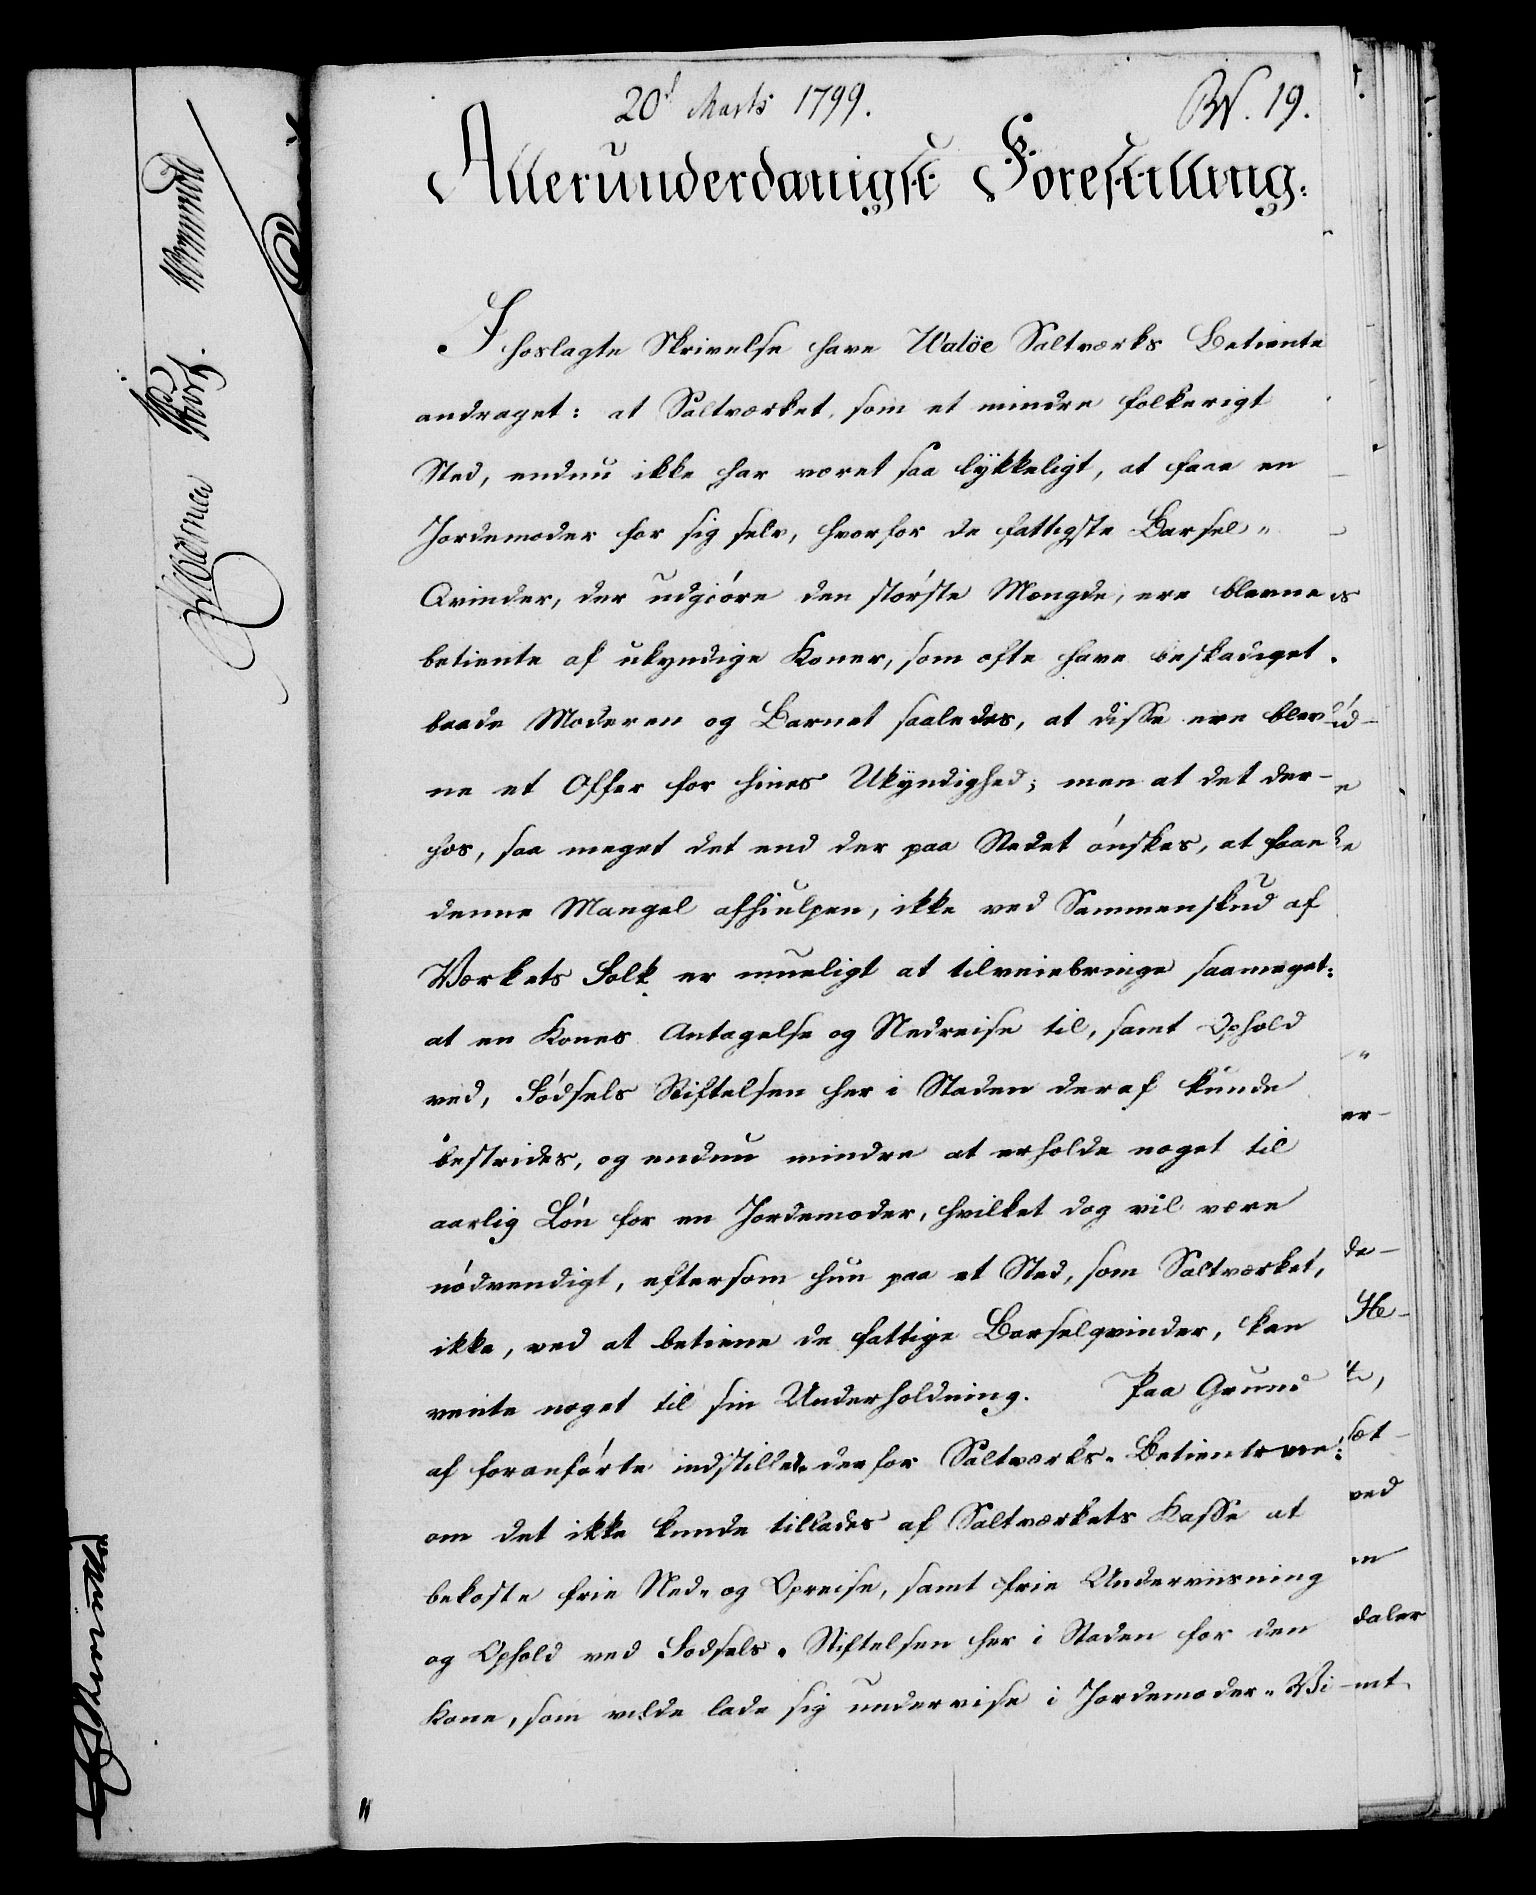 20d Marts 1799.
N. 19.
Allerunderdanigst Forestilling:
I hoslagte Skrivelse have Walöe Saltværks Betiente
andraget: at Saltværket, som et mindre folkerigt
Sted, endnu ikke har været saa lykkeligt, at faae en
Jordemoder for sig selv, hvorfor de fattigste Barsel„
Qvinder, der udgiöre den störste Mængde, ere blevne
betiente af ukyndige Koner, som ofte have beskadiget
baade Moderen og Barnet saaledes, at disse ere blev
ne et Offer for hines Ukyndighed; men at det der-
hos, saa meget det end der paa Stedet önskes, at faae
denne Mangel afhiulpen, ikke ved Sammenskud af
Værkets Folk er mueligt at tilveiebringe saameget:
at en Kones Antagelse og Nedreise til, samt Ophold
ved, Födsels Stiftelsen her i Staden deraf kunde
bestrides, og endnu mindre at erholde noget til
aarlig Lön for en Jordemoder, hvilket dog vil være
nödvendigt, eftersom hun paa et Sted, som Saltværket,
ikke, ved at betiene de fattige Barselqvinder, kan
vente noget til sin Underholdning. Paa Grund
af foranförte indstille derfor Saltværks-Betienterne:
om det ikke kunde tillades af Saltværkets Kasse at
bekoste frie Ned- og Opreise, samt frie Underviisning
og Ophold ved Fødsels-Stiftelsen her i Staden for den
Kone, som vilde lade sig undervise i Jordemoder-Vi-
er-
de-
ved
daler